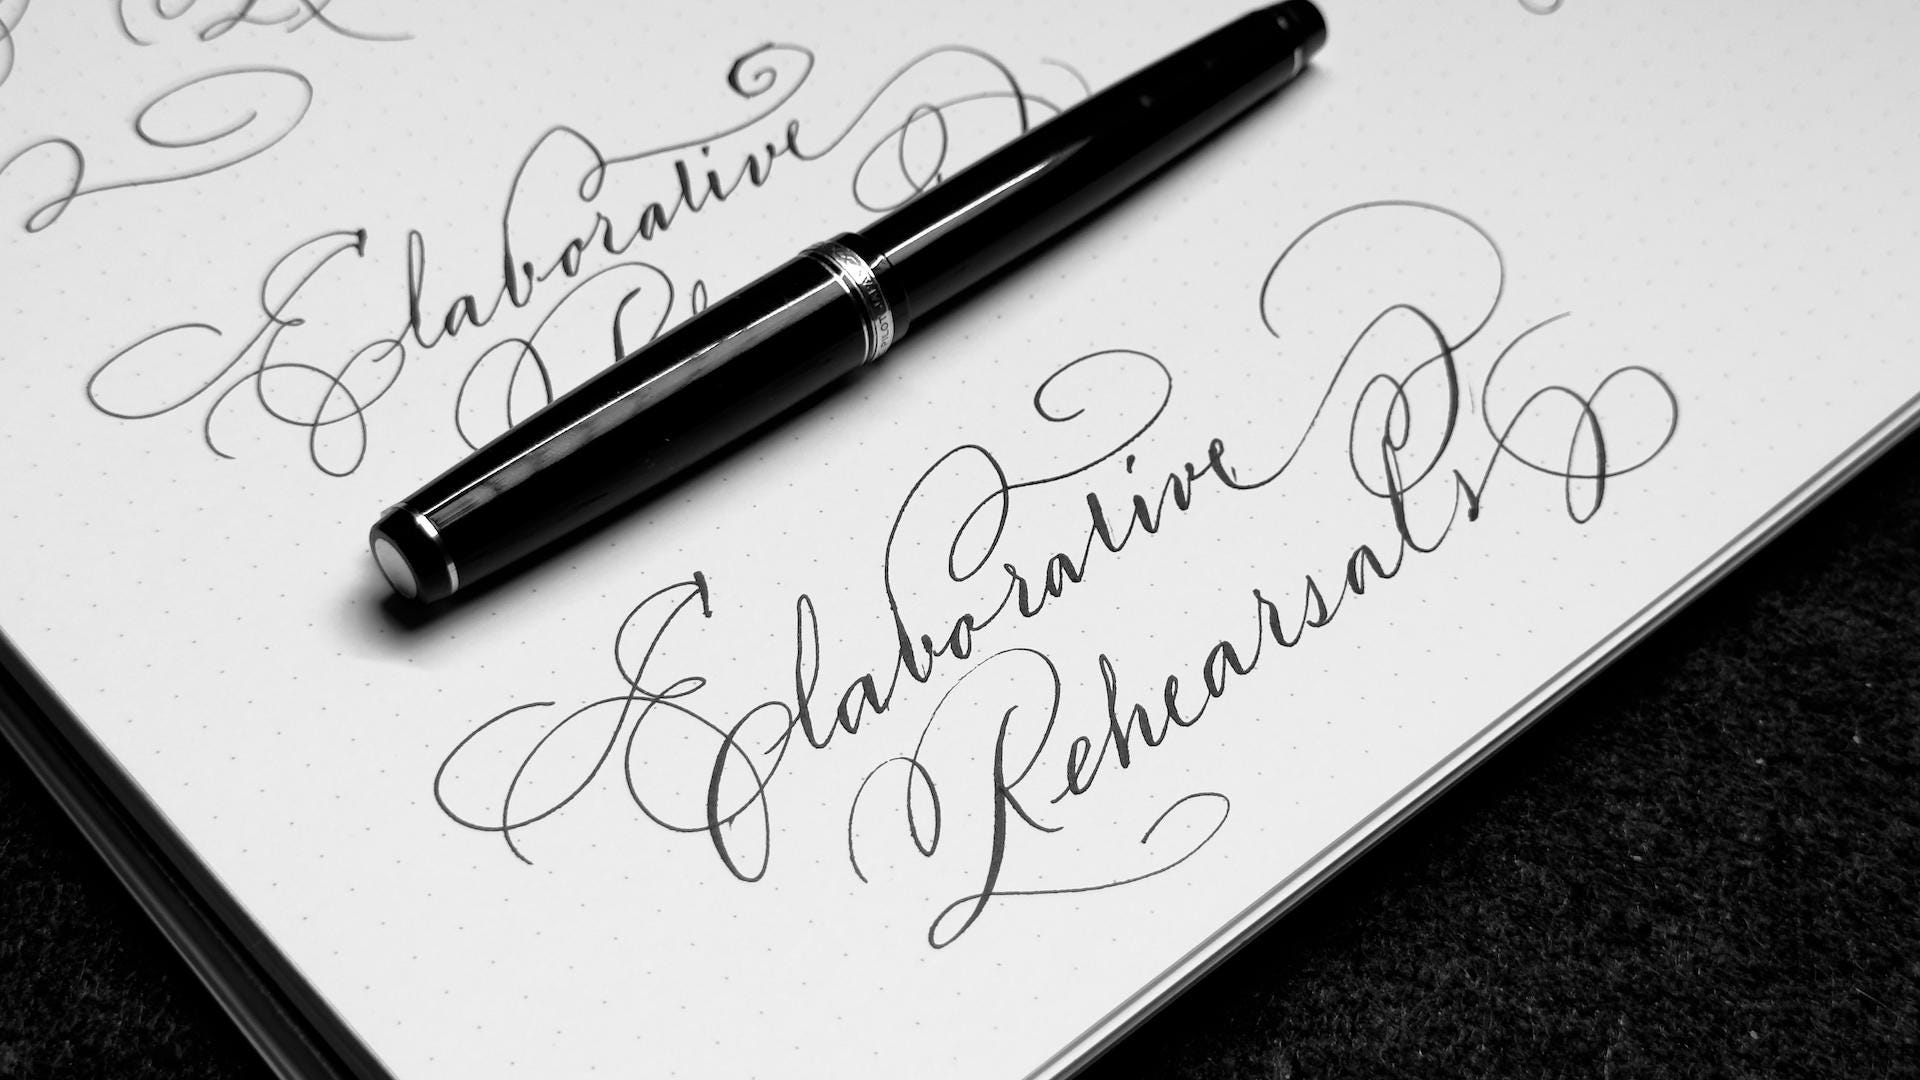 Elaborative
Elaborative
Rehearsals